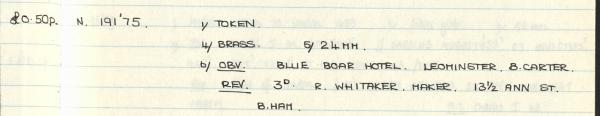 £0.50p. N. 191'75. 1/ TOKEN.
4/ BRASS. 5/ 24 MM.
6/ OBV. BLUE BOAR HOTEL. LEOMINSTER. B. CARTER.
REV. 3D. R. WHITAKER. MAKER. 13½ ANN ST.
B.HAM.